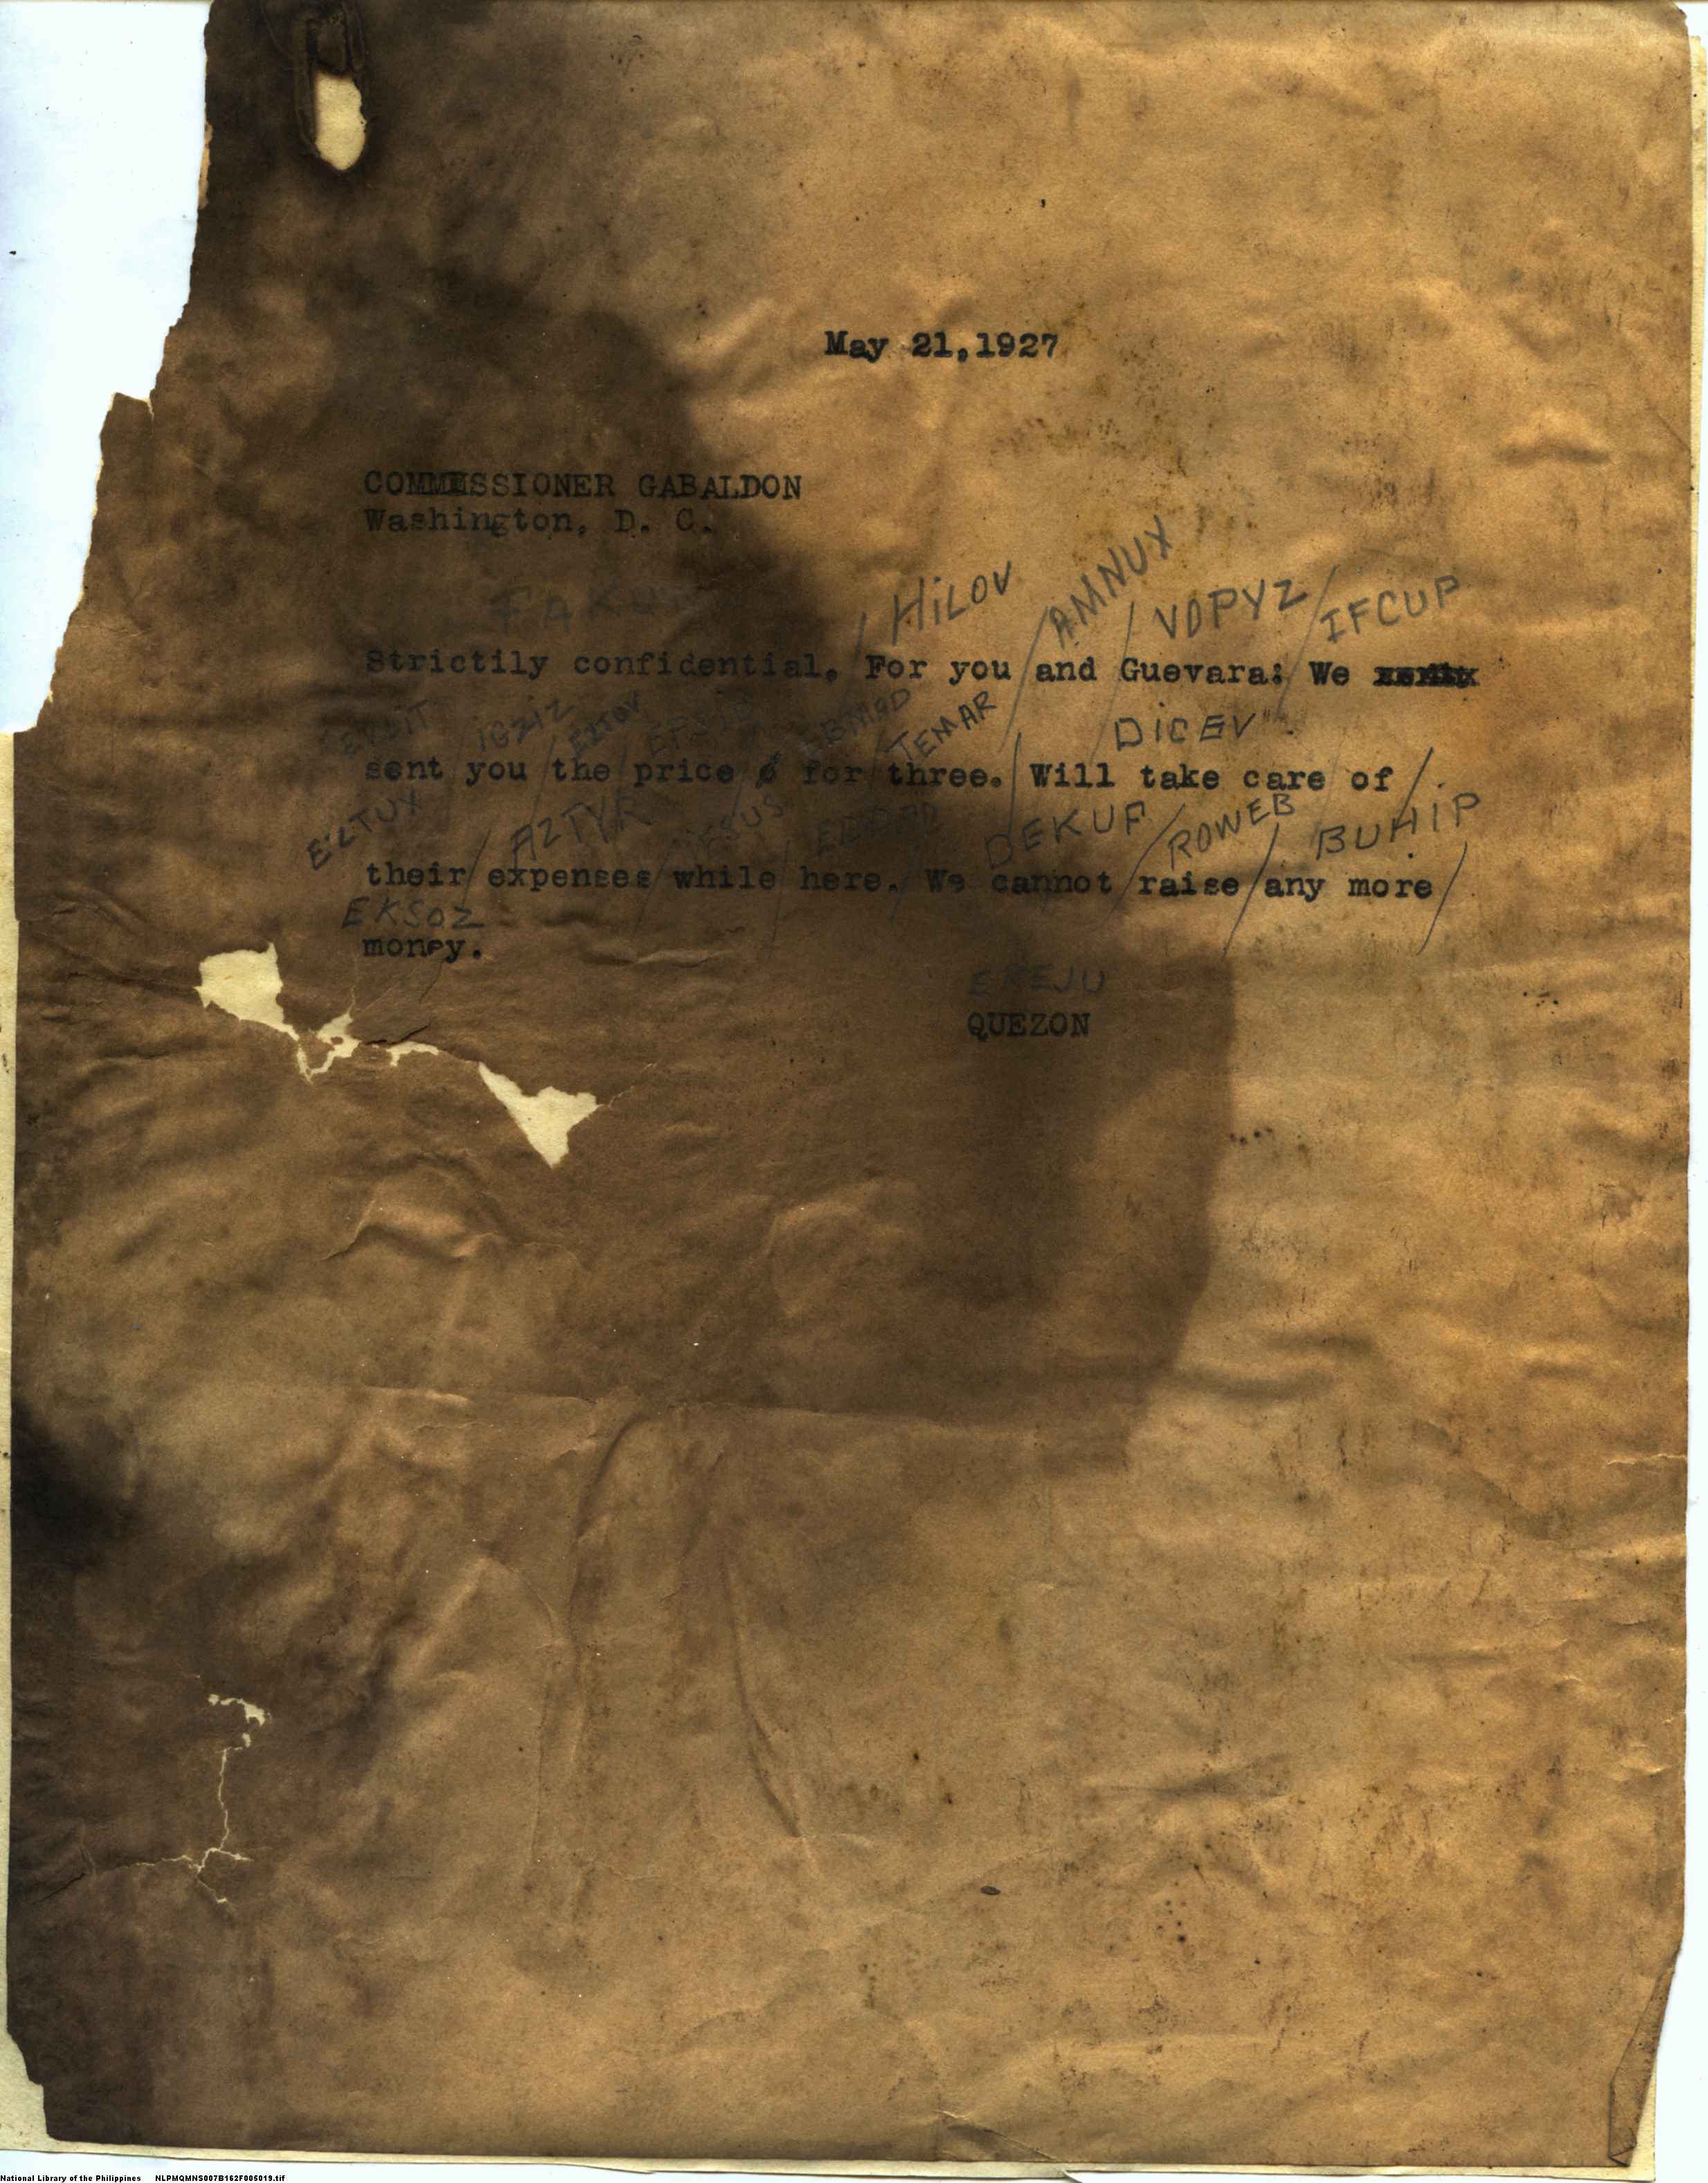 May 21,1927
COMMISSIONER GABALDON
Washington, D. C.
HILOV AMNUX VOPYZ IFCUP
Strictily confidential. For you / and Guevara: We
TEMAR DICEV
sent you / the / price for / three. / Will take care of /
EZTUX AZTYR DEKUP ROWEB BUHIP
their / expenses / while / here. / We cannot / raise / any more /
EKSOZ
money.
EREJU
QUEZON
National Library of the Philippines NLPMQMNS007B162F005019.tif